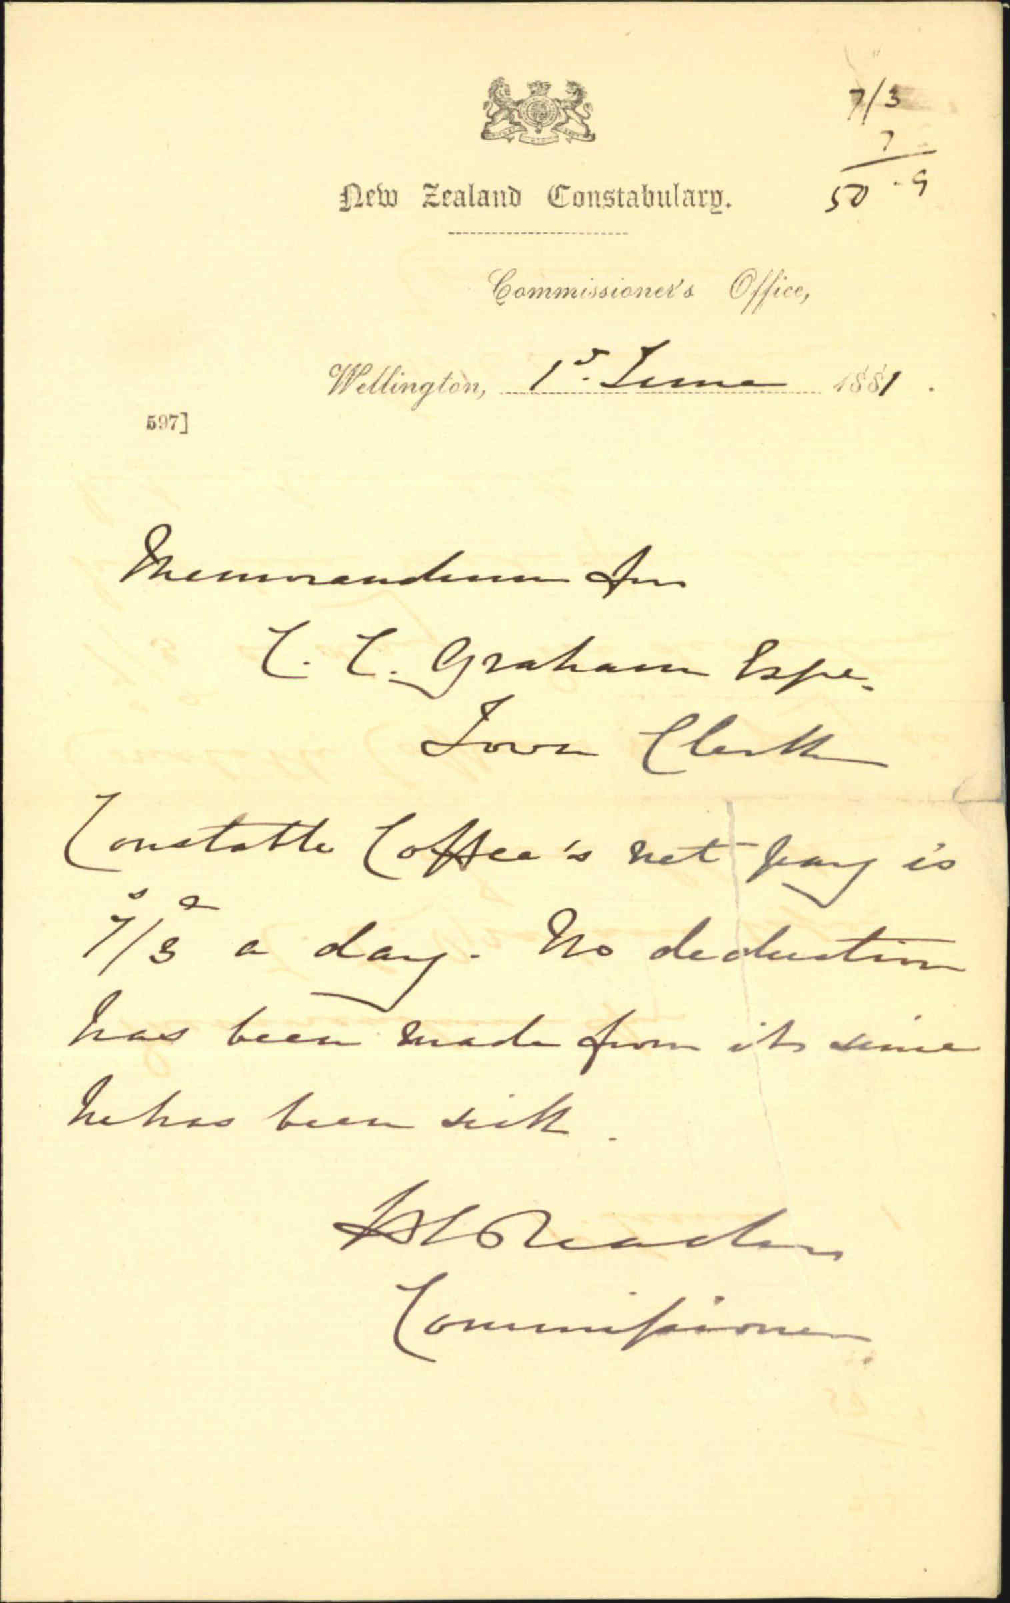 7/3
7
50.9
New Zealand Constabulary.
Commissioner's Office,
Wellington, 1st. June 1881.
597]
Memorandum for
C. C. Graham Esqre.
Town Clerk
Constable Coffee's net pay is
7s/3d a day. No deduction
has been made from it since
he has been sick.
Reader
Commissioner